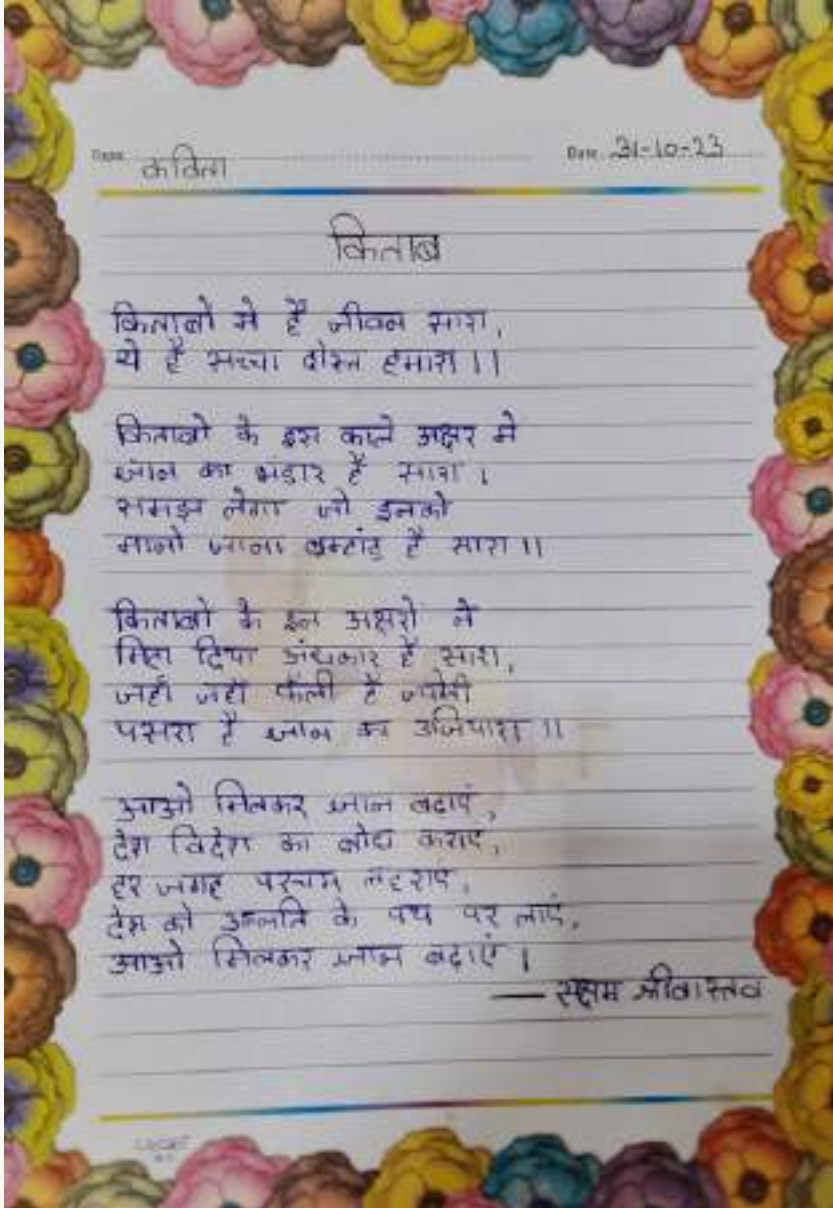 Topic कविता
Date. 31-10-23
किताब
किताबों में है जीवन सारा,
ये है सच्चा दोस्त हमारा ।।
किताबों के इस काले अक्षर में
ज्ञान का भंडार है सारा ।
समझ लेगा जो इनको
मानो जाना ब्रम्हांड है सारा ।।
किताबों के इन अक्षरों ने
मिटा दिया अंधकार है सारा,
जहाँ जहाँ फैली है ज्योती
पसरा है ज्ञान का उजियारा ।।
आओ मिलकर ज्ञान बढ़ाएं,
देश विदेश का बोध कराएं,
हर जगह परचम लहराएं,
देश को उन्नति के पथ पर लाएं,
आओ मिलकर ज्ञान बढ़ाएं ।
— सक्षम श्रीवास्तव